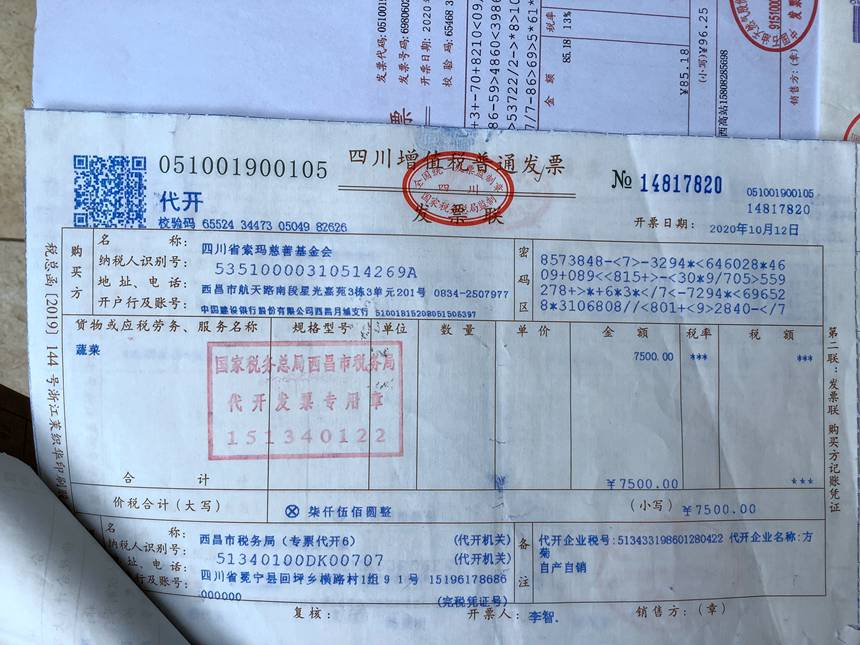 发票代码:05100
发票号码:6980602
开票日期:2020
校 验 码:65468 3
3+-70+8210<09
86-59>4860<398
>53722/2->*8>10
/7-86>69>5*61*
税率
13%
金 额
85.18
¥85.18
(小写)¥96.25
西高站15808285698
销售方:(章)
051001900105
四川增值税普通发票
№ 14817820
051001900105
14817820
代开
全国统一发票监制章
四 川
国家税务总局监制
发 票 联
校验码 65524 34473 05049 82626
开票日期: 2020年10月12日
购买方
名 称: 四川省索玛慈善基金会
纳税人识别号: 53510000310514269A
地 址、电 话: 西昌市航天路南段星光嘉苑3栋3单元201号 0834-2507977
开户行及账号: 中国建设银行股份有限公司西昌月城支行 51001815208051506397
密码区
8573848-<7>-3294*<646028*46
09+089<<815+>-<30*9/705>559
278+>*+6*3*</7<-7294*<69652
8*3106808//<801+<9>2840-</7
货物或应税劳务、服务名称 规格型号 单位 数 量 单 价 金 额 税率 税 额
蔬菜 7500.00 *** ***
国家税务总局西昌市税务局
代开发票专用章
151340122
合 计 ¥7500.00 ***
价税合计(大写) ⊗ 柒仟伍佰圆整 (小写) ¥7500.00
名 称: 西昌市税务局(专票代开6) (代开机关)
纳税人识别号: 51340100DK00707 (代开机关)
址、电 话: 四川省冕宁县回坪乡横路村1组91号 15196178686
行及账号: 000000 (完税凭证号)
备注
代开企业税号:513433198601280422 代开企业名称:方
菊
自产自销
复核: 开票人: 李智. 销售方:(章)
税总函[2019]144号浙江莱织华印刷
第二联:发票联 购买方记账凭证